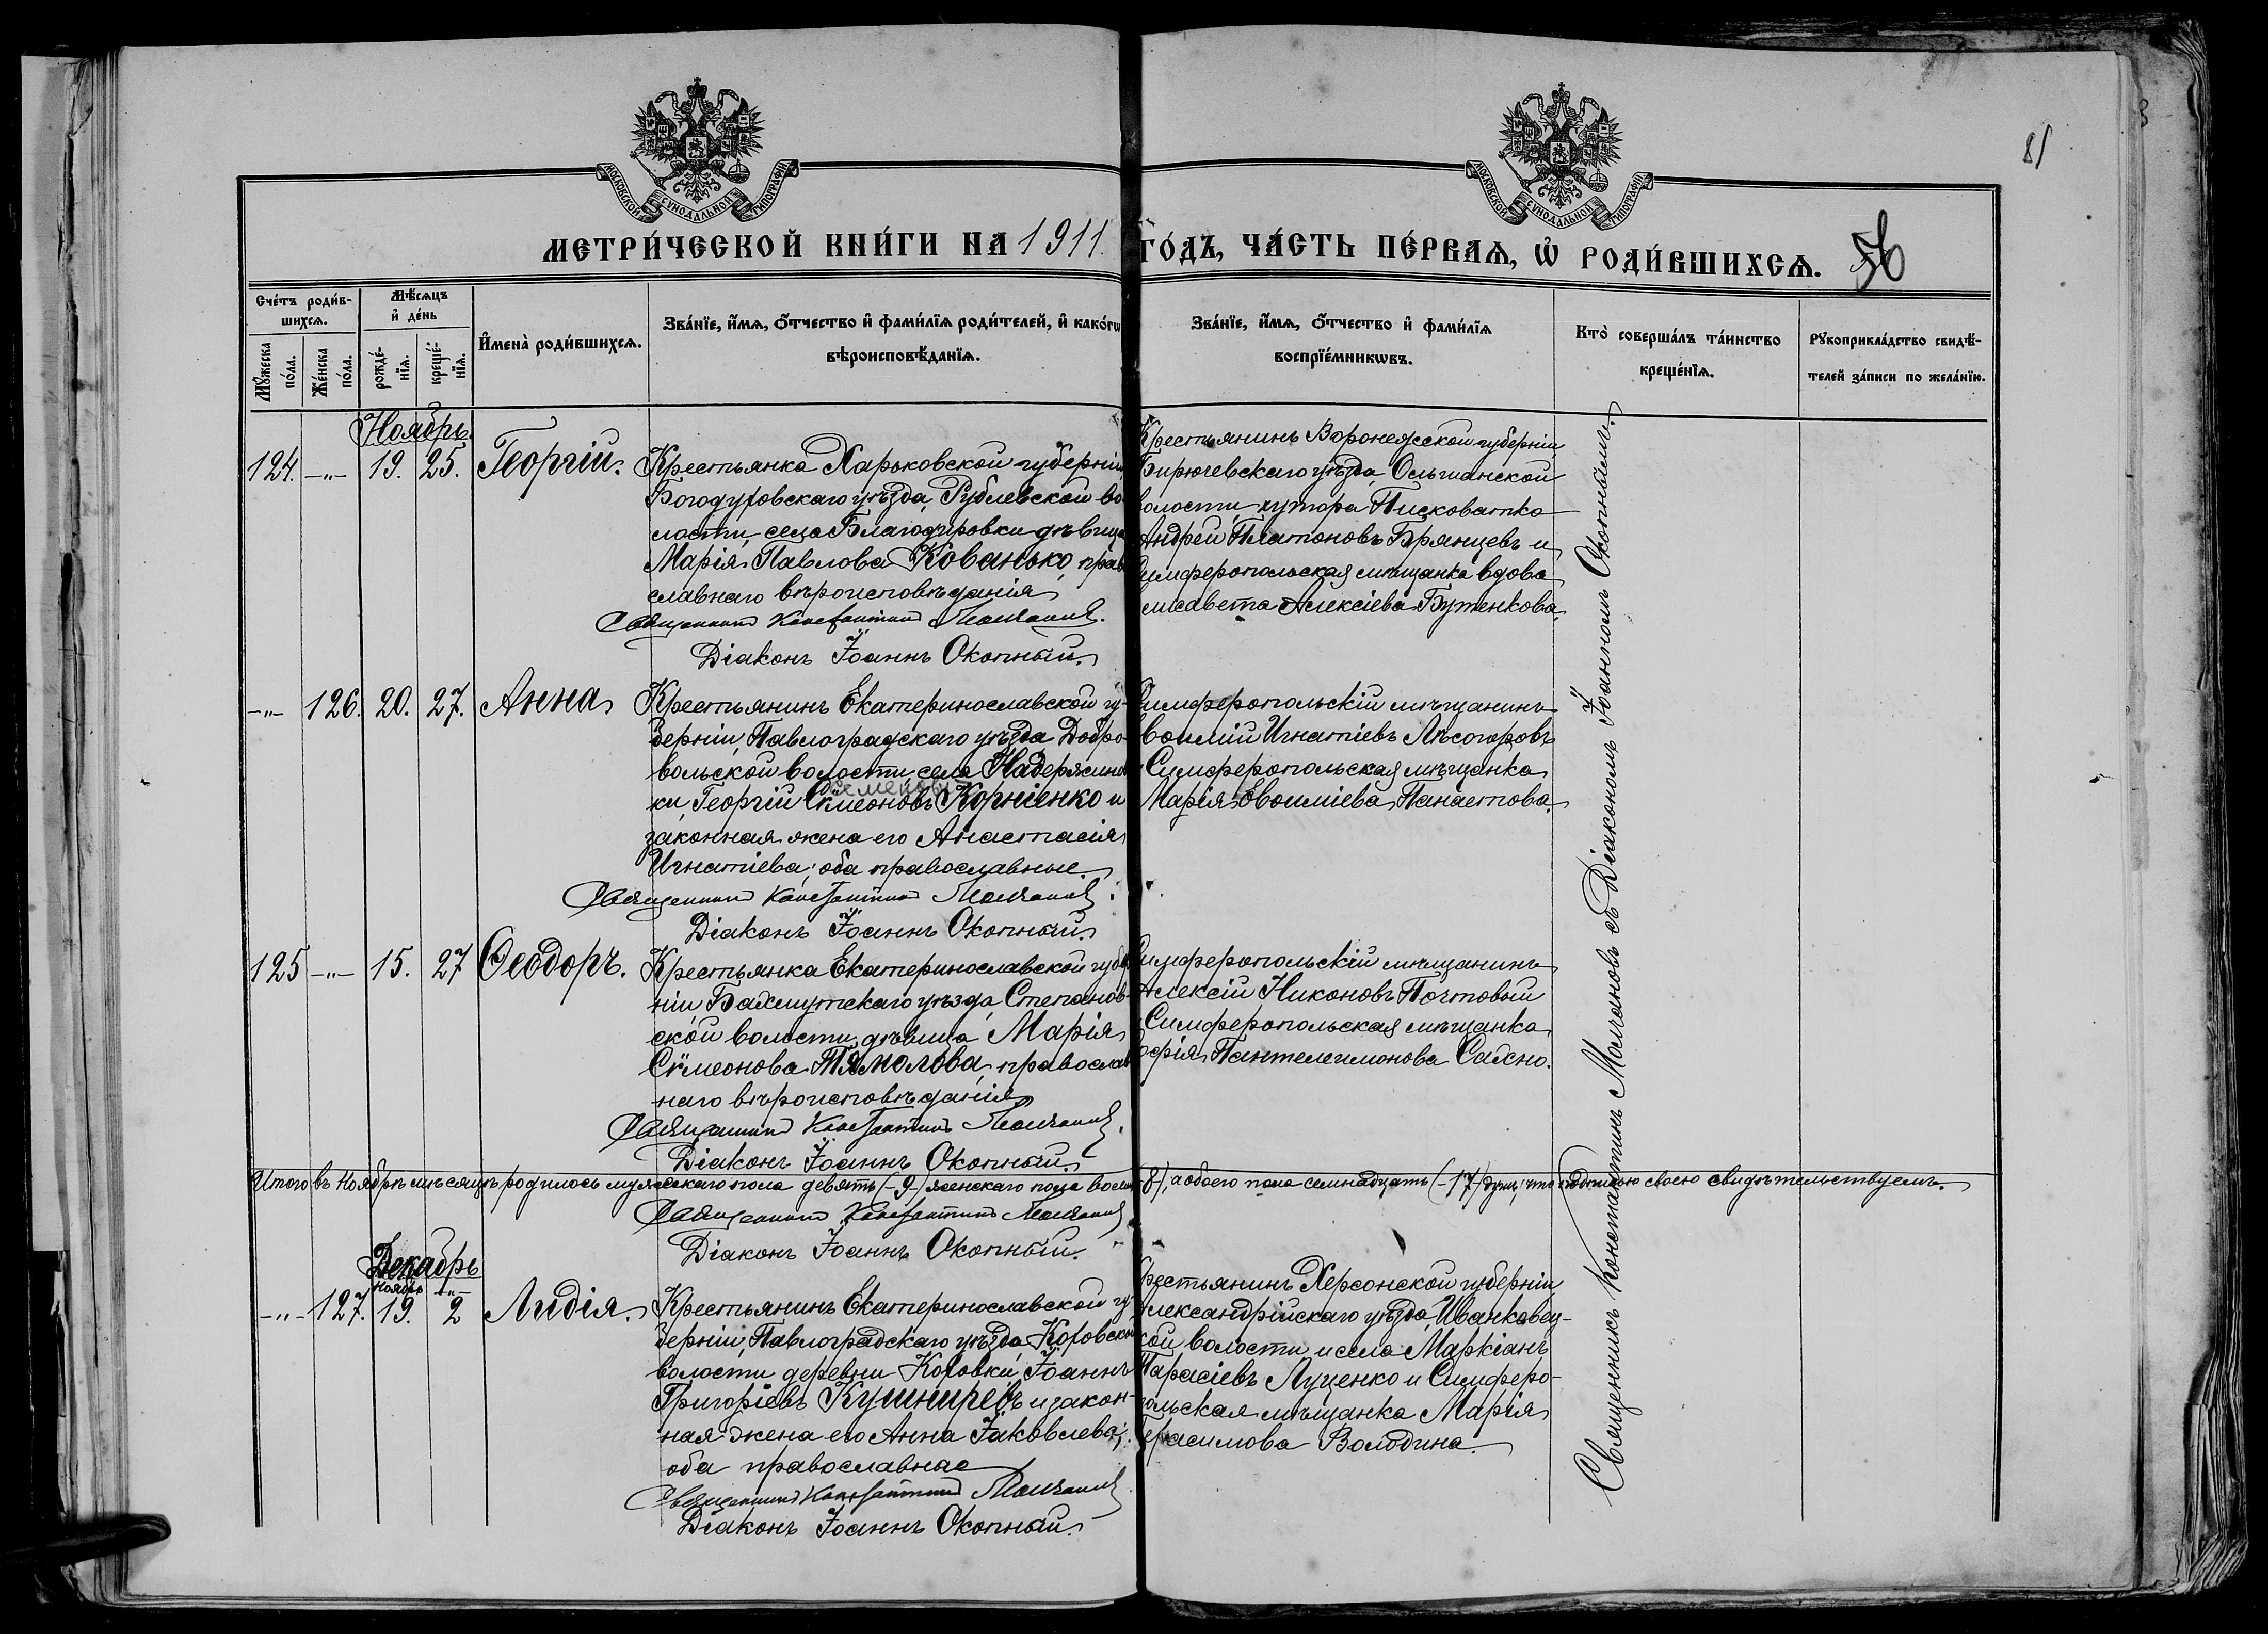 81
МОСКОВСКОЙ СѴНОДАЛЬНОЙ ТИПОГРАФІИ
МОСКОВСКОЙ СѴНОДАЛЬНОЙ ТИПОГРАФІИ
МЕТРИ́ЧЕСКОЙ КНИ́ГИ НА 1911 ГО́ДЪ, ЧА́СТЬ ПЕ́РВАѦ, Ѡ҆ РОДИ́ВШИХСѦ. 56
Сче́тъ роди́в-
шихсѧ.
Мꙋ́жеска
по́ла.
Же́нска
по́ла.
Мѣ́сѧцъ
и҆ де́нь
рожде́-
нїѧ.
креще́-
нїѧ.
И҆мена̀ роди́вшихсѧ.
Зва́нїе, и҆́мѧ, ѻ҆́тчество и҆ фами́лїѧ роди́телей, и҆ како́гѡ
вѣроисповѣ́данїѧ.
Зва́нїе, и҆́мѧ, ѻ҆́тчество и҆ фами́лїѧ
воспрїе́мникѡвъ.
Кто̀ соверша́лъ та́инство
креще́нїѧ.
Рꙋкоприкла́дство свидѣ́-
телей за́писи по жела́нїю.
Ноябрь.
124. -"- 19. 25. Георгій.
Крестьянка Харьковской губерніи
Богодуховскаго уѣзда, Рублевской во-
лости, села Благодировки дѣвица
Марія Павлова Кованько, право-
славнаго вѣроисповѣданія
Священникъ Константинъ Молчановъ.
Діаконъ Іоаннъ Окопный.
Крестьянинъ Воронежской губерніи
Бирючевскаго уѣзда, Ольшанской
волости, хутора Писковатко
Андрей Платоновъ Брянцевъ и
Симферопольская мѣщанка вдова
Елисавета Алексіева Бутенкова.
-"- 126. 20. 27. Анна
Крестьянинъ Екатеринославской гу-
берніи, Павлоградскаго уѣзда, Добро-
вольской волости, села Надержинов-
Семеновъ
ки, Георгій Симеоновъ Корніенко и
законная жена его Анастасія
Игнатіева; оба православные.
Священникъ Константинъ Молчановъ.
Діаконъ Іоаннъ Окопный.
Симферопольскій мѣщанинъ
Евѳимій Игнатіевъ Лѣсогоровъ
и Симферопольская мѣщанка
Марія Евѳиміева Панаетова.
125 -"- 15. 27 Ѳеодоръ.
Крестьянка Екатеринославской губер-
ніи Бахмутскаго уѣзда, Степанов-
ской волости, дѣвица Марія
Симеонова Тямолова, православ-
наго вѣроисповѣданія
Священникъ Константинъ Молчановъ.
Діаконъ Іоаннъ Окопный.
Симферопольскій мѣщанинъ
Алексій Никоновъ Почтовый
и Симферопольская мѣщанка
Софія Пантелеимонова Сахно.
Итого въ Ноябрѣ мѣсяцѣ родилось мужескаго пола девять (-9-) женскаго пола восемь (-8), а обоего пола семнадцать (-17) душъ; что подписью своею свидѣтельствуемъ.
Священникъ Константинъ Молчановъ
Діаконъ Іоаннъ Окопный.
Декабрь
Ноябрь -"-
-"- 127. 19. 2 Лидія.
Крестьянинъ Екатеринославской гу-
берніи, Павлоградскаго уѣзда, Коховской
волости деревни Коховки, Іоаннъ
Григоріевъ Кушниревъ и закон-
ная жена его Анна Іаковлева;
оба православные
Священникъ Константинъ Молчановъ
Діаконъ Іоаннъ Окопный.
Крестьянинъ Херсонской губерніи
Александрійскаго уѣзда, Иванковец-
кой волости и села Маркіанъ
Тарасіевъ Луценко и Симферо-
польская мѣщанка Марія
Герасимова Володина.
Священникъ Константинъ Молчановъ съ Діакономъ Іоанномъ Окопнымъ.